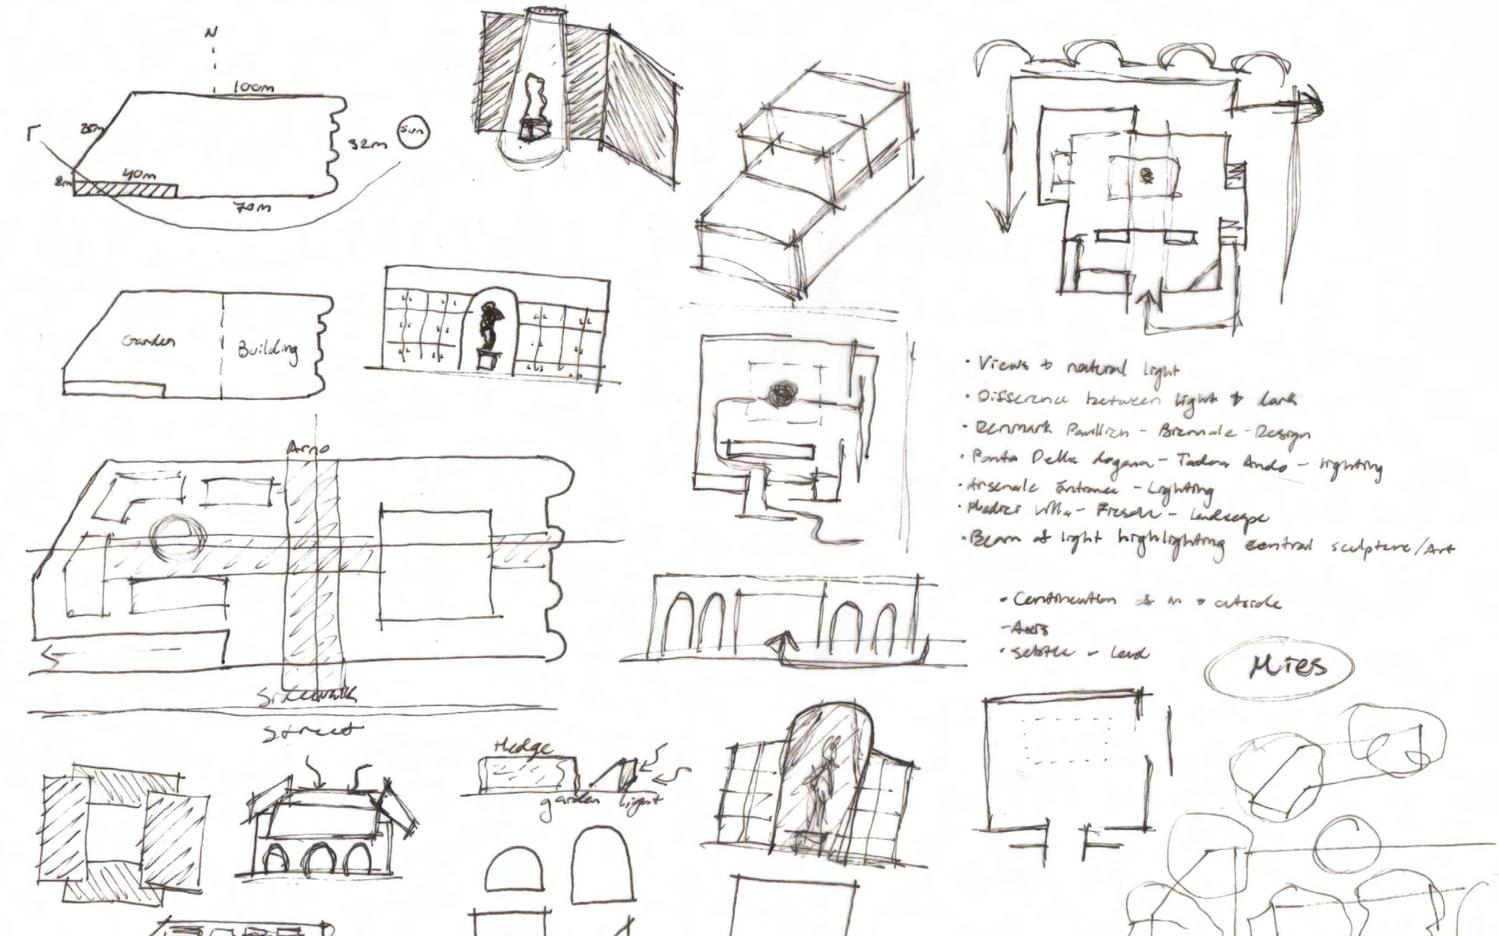 N
100m
25m
32m
sun
40m
8m
70m
Garden
Building
Arno
Sidewalk
Street
Hedge
garden
light
• Views & natural light
• Difference between light & dark
• Denmark Pavilion - Biennale - Design
• Punta Della dogana - Tadao Ando - lighting
• Arsenale Entrance - Lighting
• Medici Villa - Fiesole - landscape
• Beam of light highlighting central sculpture/Art
• Continuation of in & outside
- Axis
• subtle - lead
Mies